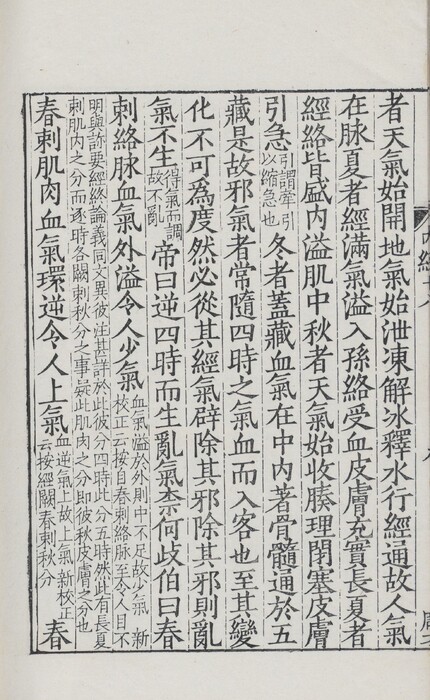 者天氣始開地氣始泄凍解冰釋水行經通故人氣
在脉夏者經滿氣溢入孫絡受血皮膚充實長夏者
經絡皆盛内溢肌中秋者天氣始收腠理閉塞皮膚
引急引謂牽引以縮急也冬者蓋藏血氣在中内著骨髓通於五
藏是故邪氣者常隨四時之氣血而入客也至其變
化不可為度然必從其經氣辟除其邪除其邪則亂
氣不生得氣而調故不亂帝曰逆四時而生亂氣柰何歧伯曰春
刺絡脉血氣外溢令人少氣血氣溢於外則中不足故少氣 新校正云按自春刺絡脉至令人目不
明與診要經終論義同文異彼注甚詳於此彼分四時此分五時然此有長夏
刺肌肉之分而逐時各闕刺秋分之事疑此肌肉之分即彼秋皮膚之分也
春刺肌肉血氣環逆令人上氣血逆氣上故上氣 新校正云按經闕春刺秋分春